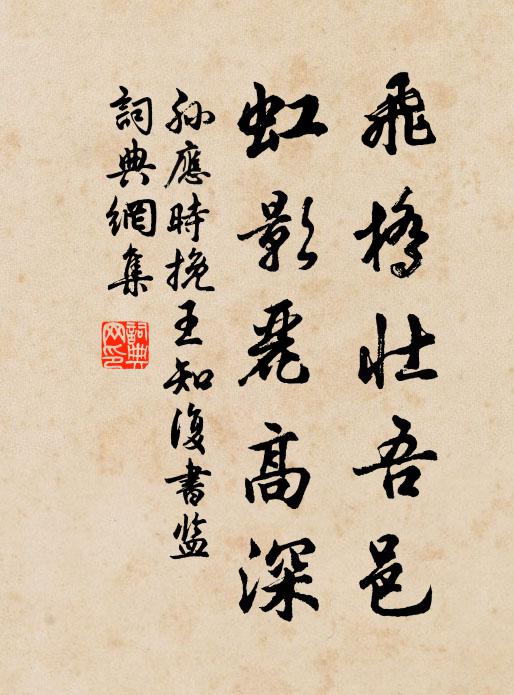 飛橋壯吾邑
虹影麗高深
孫應時挽王知復書監
詞典網集
詞典網印